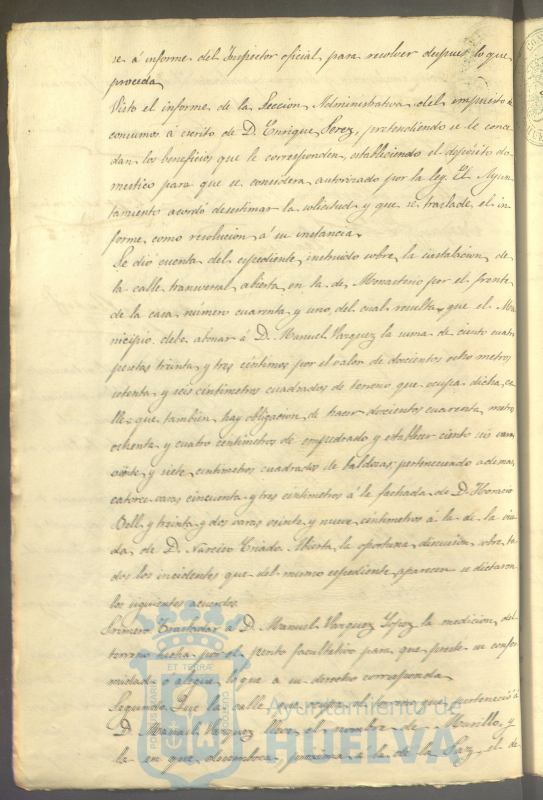 se á informe del Inspector oficial para resolver despues lo que
proceda
Visto el informe de la Seccion Administrativa del impuesto de
consumos á escrito de D. Enrique Perez, pretendiendo se le conce-
dan los beneficios que le corresponden, estableciendo el depósito do-
mestico para que se considera autorizado por la ley. El Ayun-
tamiento acordó desestimar la solicitud y que se traslade el in-
forme como resolucion á su instancia.
Se dió cuenta del espediente, instruido sobre la instalacion de
la calle transversal abierta en la de Monasterio por el frente
de la casa número cuarenta y uno, del cual resulta que el Mu-
nicipio debe abonar á D. Manuel Vazquez la suma de ciento cuatro
pesetas treinta y tres céntimos por el valor de doscientos ocho metros
setenta y seis centimetros cuadrados de terreno que ocupa dicha ca-
lle: que tambien hay obligacion de hacer doscientos cuarenta metros
ochenta y cuatro centimetros de empedrado y establecer ciento seis varas
veinte y siete centimetros cuadrados de baldosas perteneciendo ademas
catorce varas cincuenta y tres centimetros á la fachada de D. Horacio
Bell y treinta y dos varas veinte y nueve centimetros á la de la viu-
da de D. Narciso Criado. Abierta la oportuna discusion sobre to-
dos los incidentes que del mismo espediente aparecen se dictaron
los siguientes acuerdos.
Primero Trasladar á D. Manuel Vazquez Lopez la medicion del
terreno hecha por el perito facultativo para que preste su confor-
midad o alegue lo que a su derecho corresponda
Segundo Que la calle que ocupa el que perteneció á
D. Manuel Vazquez lleve el nombre de Murillo y
la en que desemboca, proxima á la de la Paz, el de
ET TERRÆ
Ayuntamiento de
HUELVA